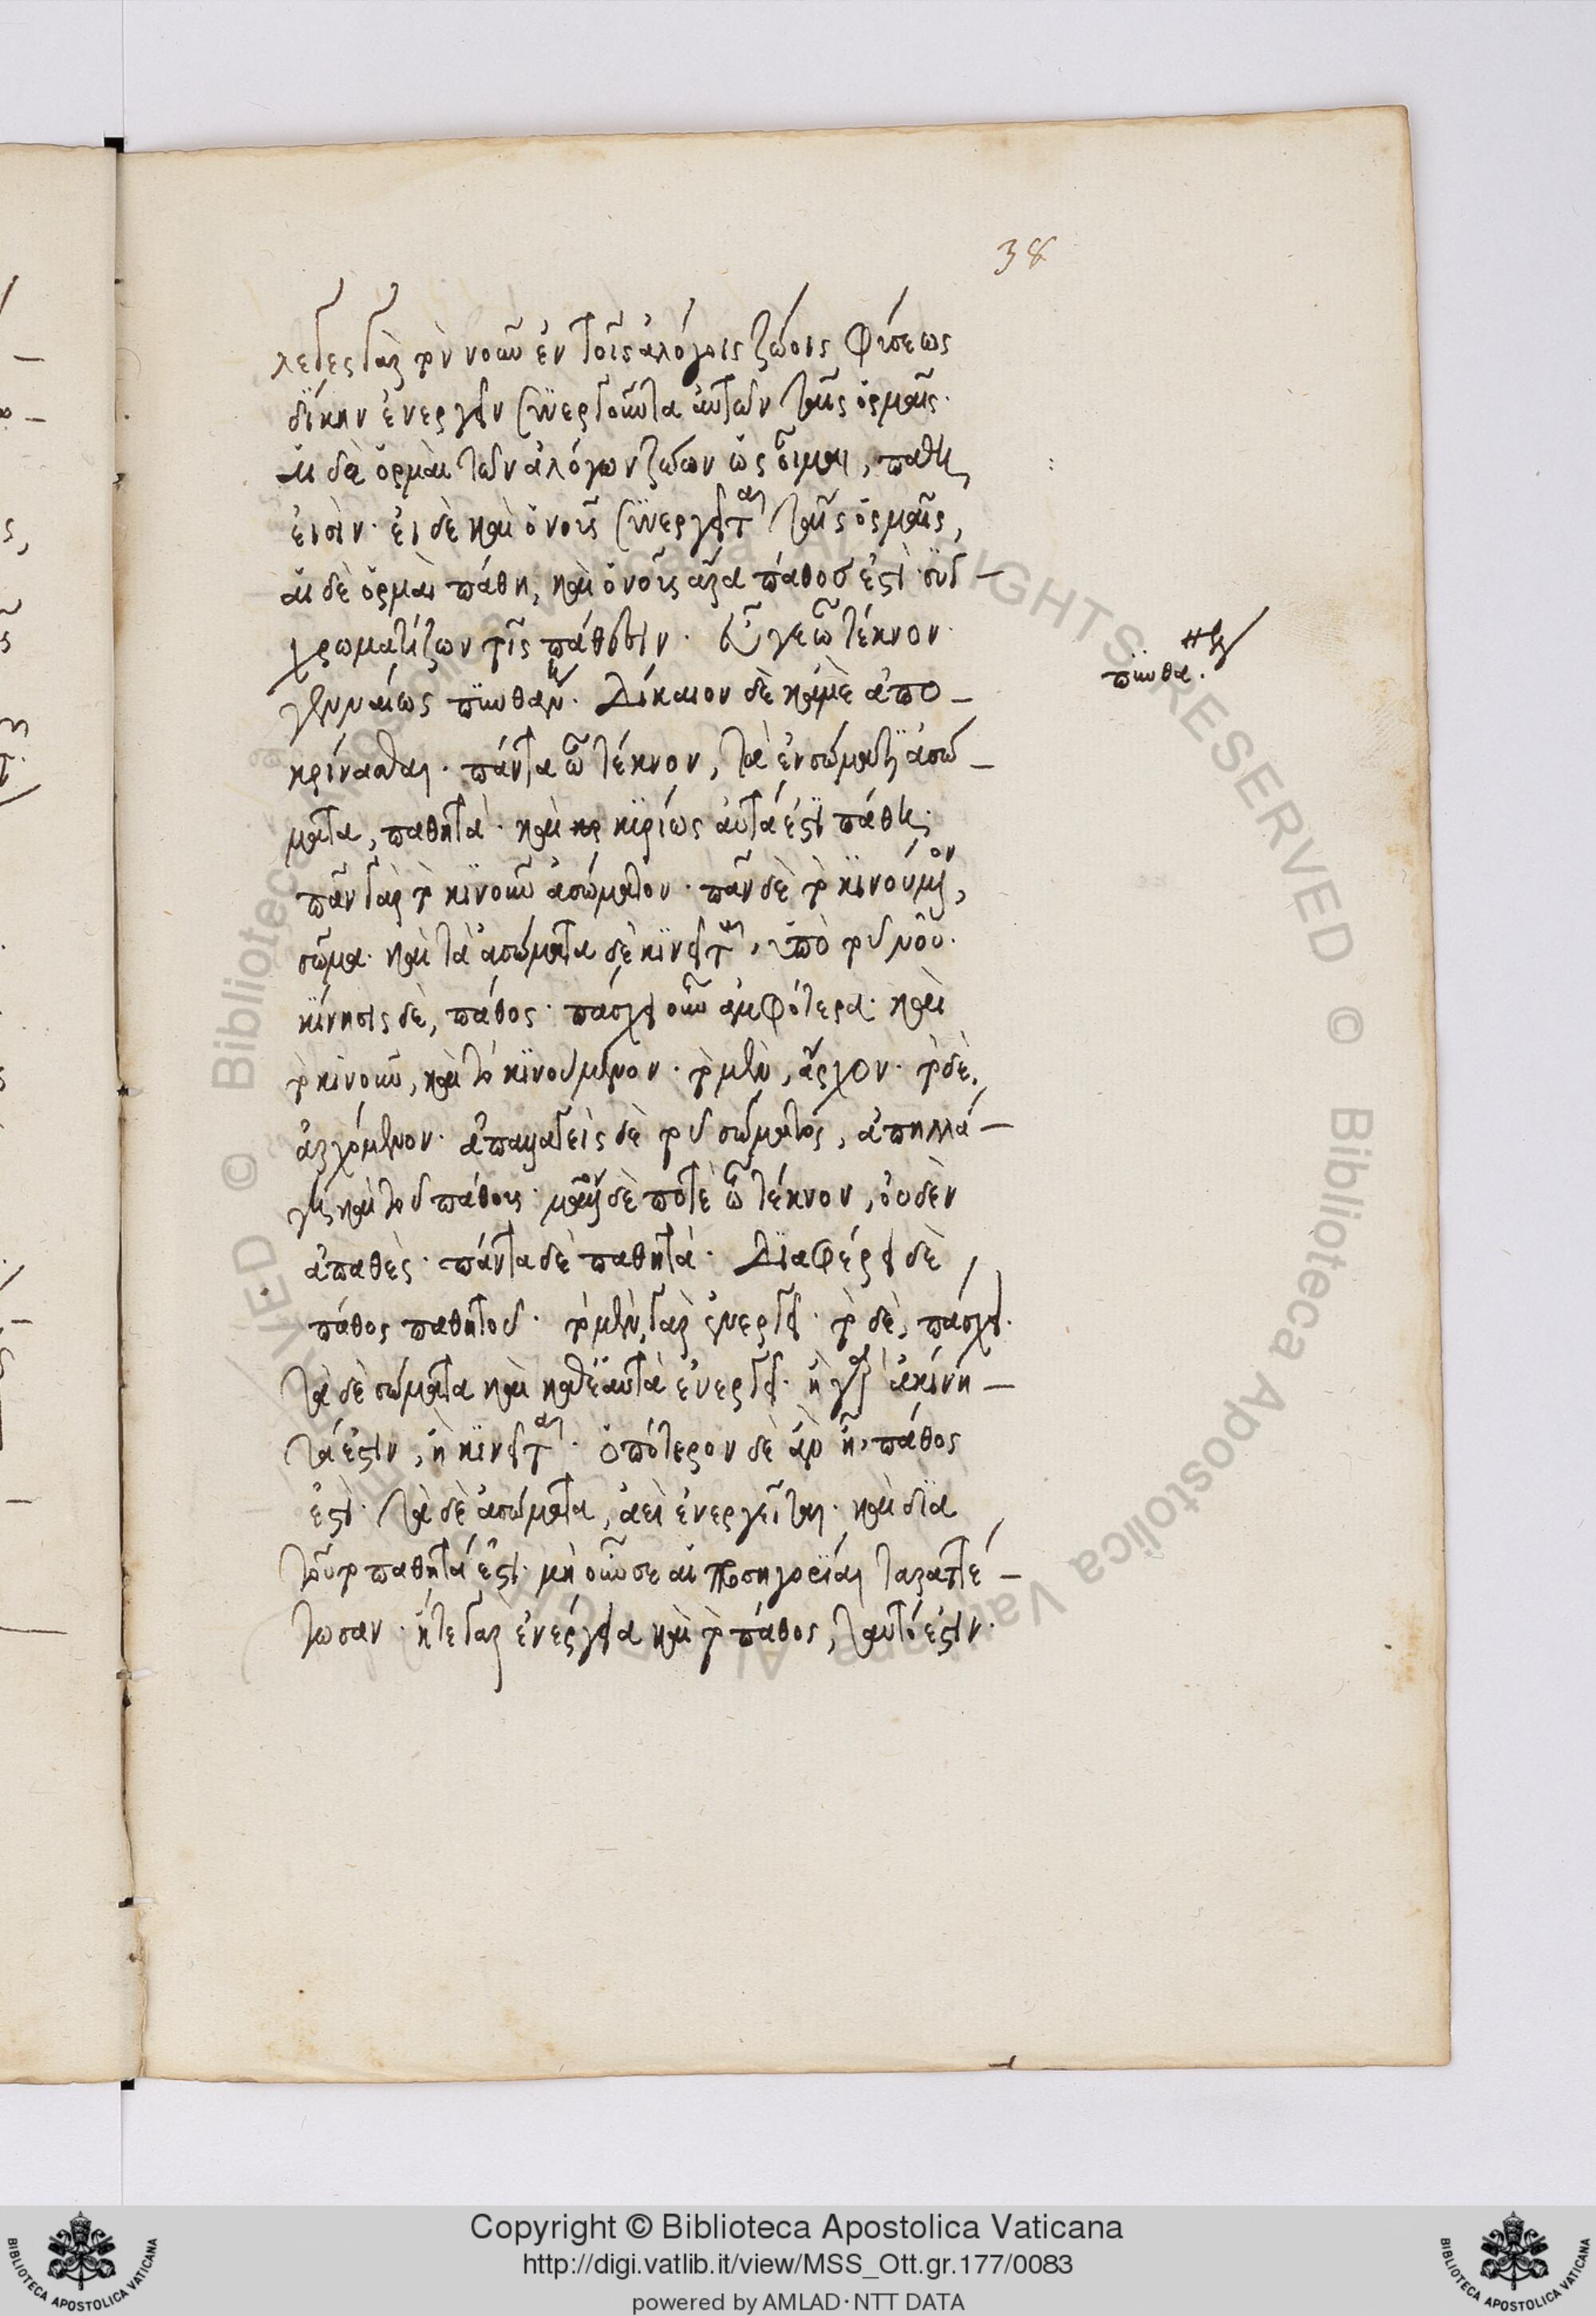 38
λετες γὰρ τὸν νοῦν ἐν τοῖς ἀλόγοις ζώοις φύσεως
δίκην ἐνεργεῖν συνεργοῦντα αὐτῶν ταῖς ὁρμαῖς.
αἱ δὲ ὁρμαὶ τῶν ἀλόγων ζώων ὡς οἶμαι, πάθη
εἰσὶν. εἰ δὲ καὶ ὁ νοῦς συνεργεῖται ταῖς ὁρμαῖς,
αἱ δὲ ὁρμαὶ πάθη, καὶ ὁ νοῦς ἄρα πάθος ἐστὶ συγ-
χρωματίζων τοῖς πάθεσιν. Εὖγε ὦ τέκνον.
γενναίως πυνθάνῃ. Δίκαιον δὲ κἀμὲ ἀπο-
κρίνασθαι. πάντα ὦ τέκνον, τὰ ἐν σώματι ἀσώ-
ματα, παθητά. καὶ κυρίως αὐτά ἐστι πάθη.
πᾶν γὰρ τὸ κινοῦν ἀσώματον. πᾶν δὲ τὸ κινούμενον,
σῶμα. καὶ τὰ ἀσώματα δὲ κινεῖται, ὑπὸ τοῦ νοῦ.
κίνησις δὲ, πάθος. πάσχει οὖν ἀμφότερα. καὶ
τὸ κινοῦν, καὶ τὸ κινούμενον. τὸ μὲν, ἄρχον. τὸ δὲ,
ἀρχόμενον. ἀπαλλαγεὶς δὲ τοῦ σώματος, ἀπηλλά-
γη καὶ τοῦ πάθους. μᾶλλον δέ ποτε ὦ τέκνον, οὐδὲν
ἀπαθὲς. πάντα δὲ παθητά. Διαφέρει δὲ
πάθος παθητοῦ. τὸ μὲν γὰρ ἐνεργεῖ. τὸ δὲ, πάσχει.
τὰ δὲ σώματα καὶ καθ' ἑαυτὰ ἐνεργεῖ. ἢ γὰρ ἀκίνη-
τά ἐστιν, ἢ κινεῖται. ὁπότερον δὲ ἂν ᾖ, πάθος
ἐστὶ. τὰ δὲ ἀσώματα, ἀεὶ ἐνεργεῖται. καὶ διὰ
τοῦτο παθητά ἐστι. μὴ οὖν σε αἱ προσηγορίαι ταραττέ-
τωσαν. ἥτε γὰρ ἐνέργεια καὶ τὸ πάθος, ταυτό ἐστιν.
Copyright © Biblioteca Apostolica Vaticana
http://digi.vatlib.it/view/MSS_Ott.gr.177/0083
powered by AMLAD·NTT DATA